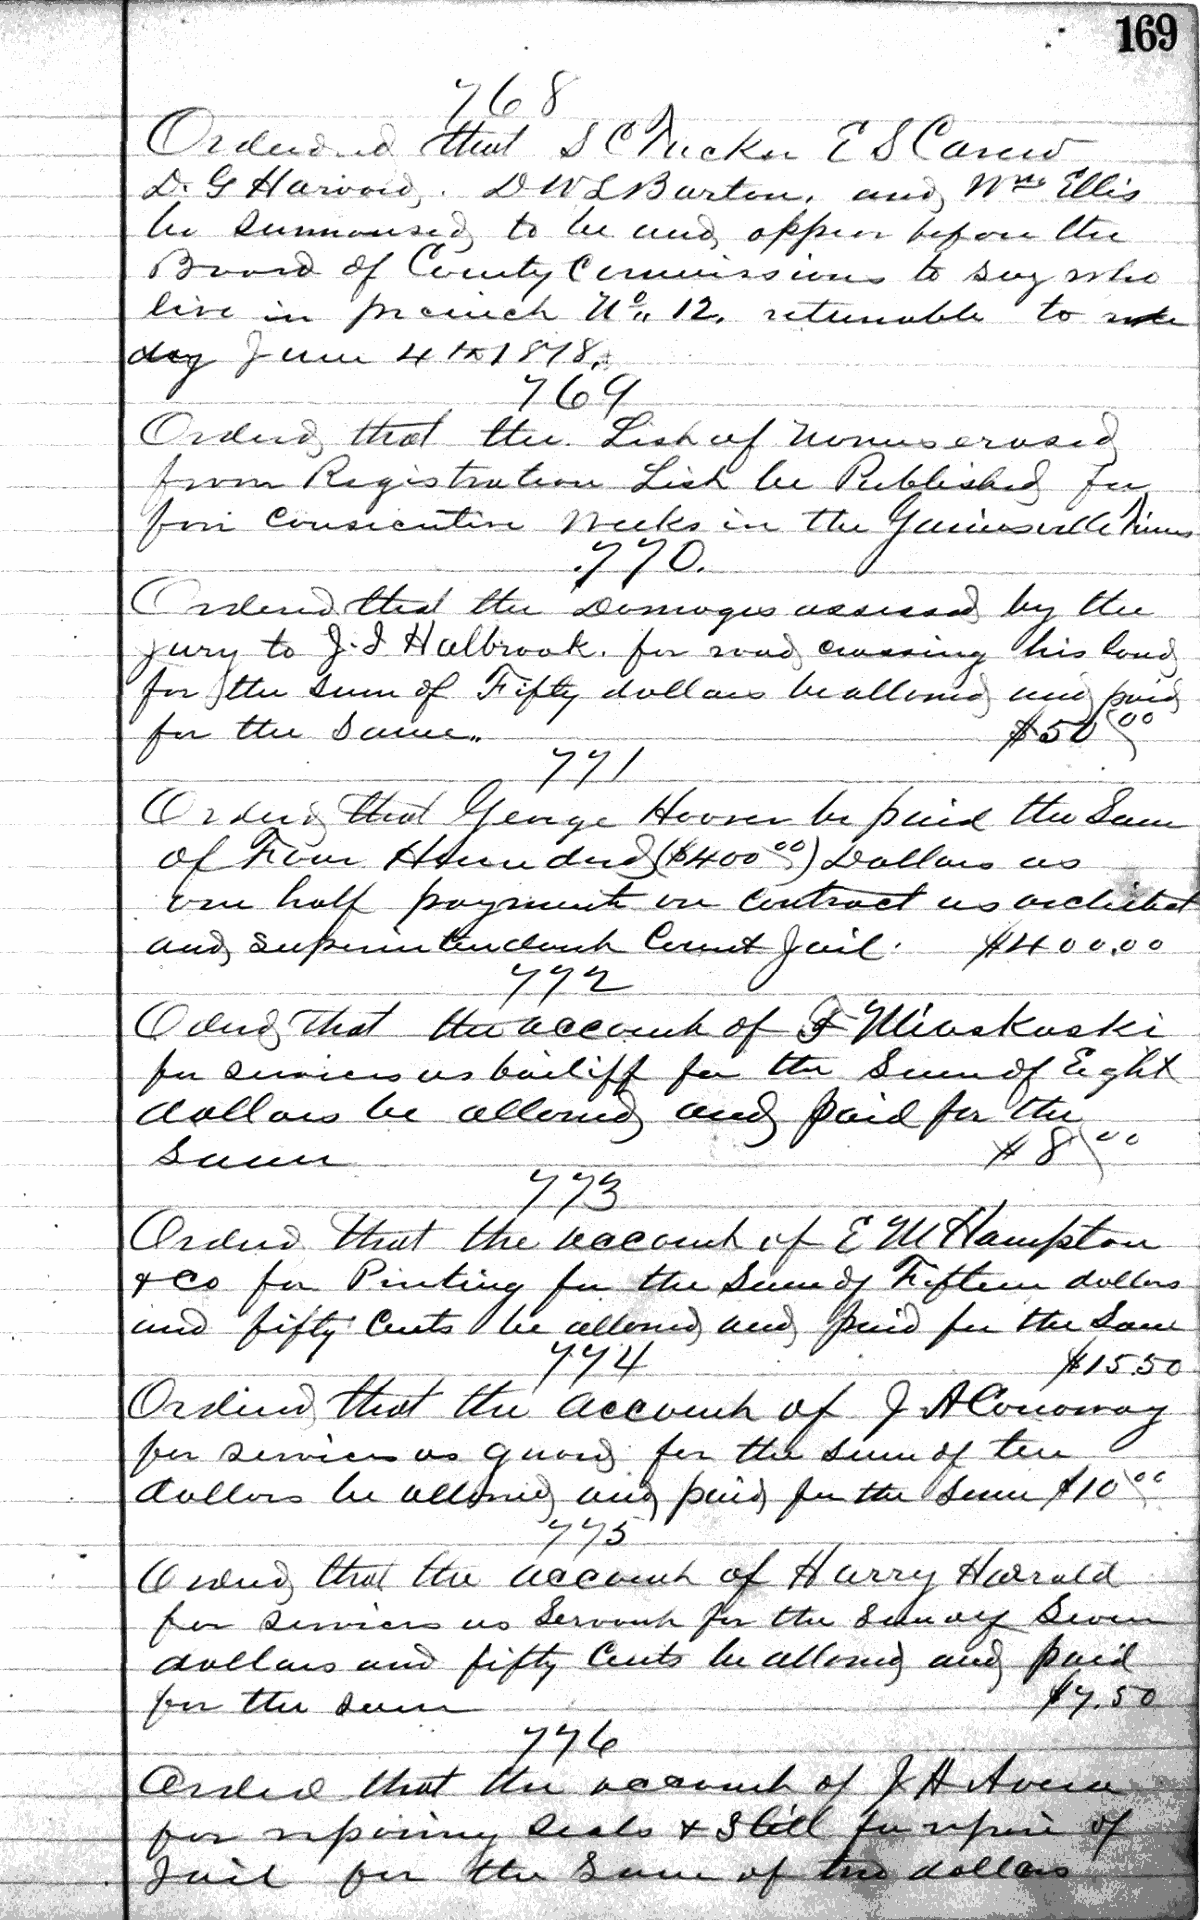 169
768
Ordered that S C Tucker E S Carew
D. G Harvard. D W L Barton. and Wm Ellis
be summonsed to be and appear before the
Board of County Commissions to say who
live in precinch No. 12. returnable to
day June 4th 1878.
769
Orderd that the List of Names erased
from Registration List be Published for
four consecutive weeks in the Gainesville Times
770.
Ordered that the Damages assessed by the
jury to J. I Halbrook. for road crossing his land
for the sum of Fifty dollars be allowed and paid
for the same. $50 00
771
Orderd that George Hoover be paid the Sum
of Four Hundred ($400 00) Dollars as
one half payment on contract as architect
and superintendent Count Jail. $400.00
772
Oderd that the account of F Miaskaski
for services as bailiff for the Sum of Eight
dollars be allowed and paid for the
same $8 00
773
Orderd that the account of E M Hampton
& Co for Printing for the Sum of Fifteen dollars
and fifty Cents be allowed and paid for the Same
774 $15.50
Ordered that the account of J. A Conoway
for services as guard for the sum of ten
dollars be allowed and paid for the same $10 00
775
Orderd that the account of Harry Harrold
for services as Servant for the Sum of Seven
dollars and fifty Cents be allowed and paid
for the same $7.50
776
Orderd that the account of J. H Avera
for repairing Seals & Still for repair of
Jail for the Sum of two dollars